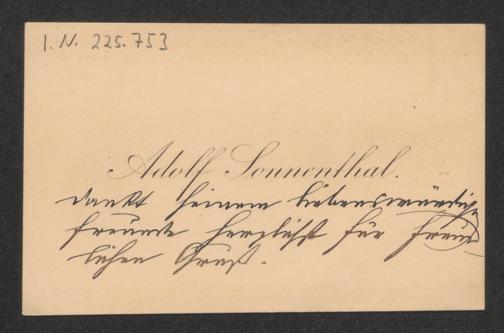 I. N. 225.753
Adolf Sonnenthal.
dankt seinem liebenswürdigen
Freunde herzlichst für freund-
lichen Gruß.